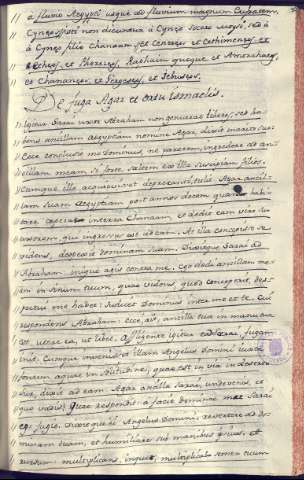 a fluvio Aegypti usque ad fluvium magnum Euphratem,
et Cethimenses, et
et Pherezeos, Raphaim quoque et Amorrhaeos,
et Chananaeos, et Gergeseos, et Jebuseos.
De fuga Agar et ortu ismaelis.
Igitur Sarai uxor Abraham non genuerat liberos; sed ha-
bens ancillam aegyptiam nomine Agar, dixit marito suo:
Ecce conclusit me dominus, ne parerem, ingredere ad an-
cillam meam, si forte saltem ex illa suscipiam filios.
Cumque ille acquievisset deprecanti, tulit Agar ancil-
lam suam Aegyptiam post annos decem quam habi-
tare ceperant in terra Chanaam, et dedit eam viro suo
uxorem, qui ingressus est ad eam. At illa concepisse se
videns, despexit dominam suam. Dixitque Sarai ad
Abraham: inique agis contra me, ego dedi ancillam me-
am in sinum tuum, quae videns, quod conceperit, des-
pectui me habet: Judicet Dominus inter me et te. Cui
respondens Abraham: ecce, ait, ancilla tua in manu tua
est, utere ea, ut libet. Affligente igitur eam Sarai, fugam
iniit. Cumque invenisset illam Angelus Domini juxta
fontem aquae in solitudine, quae est in via in deserto
dixit ad eam: Agar ancilla Sarai, unde venis, et
quo vadis? Quae respondit: a facie dominae meae Sarai
ego fugio, dixitque ei Angelus Domini, revertere ad do-
minam tuam, et humiliare sub manibus ipsius, et
rursum: multiplicans, inquit, multiplicabo semen tuum